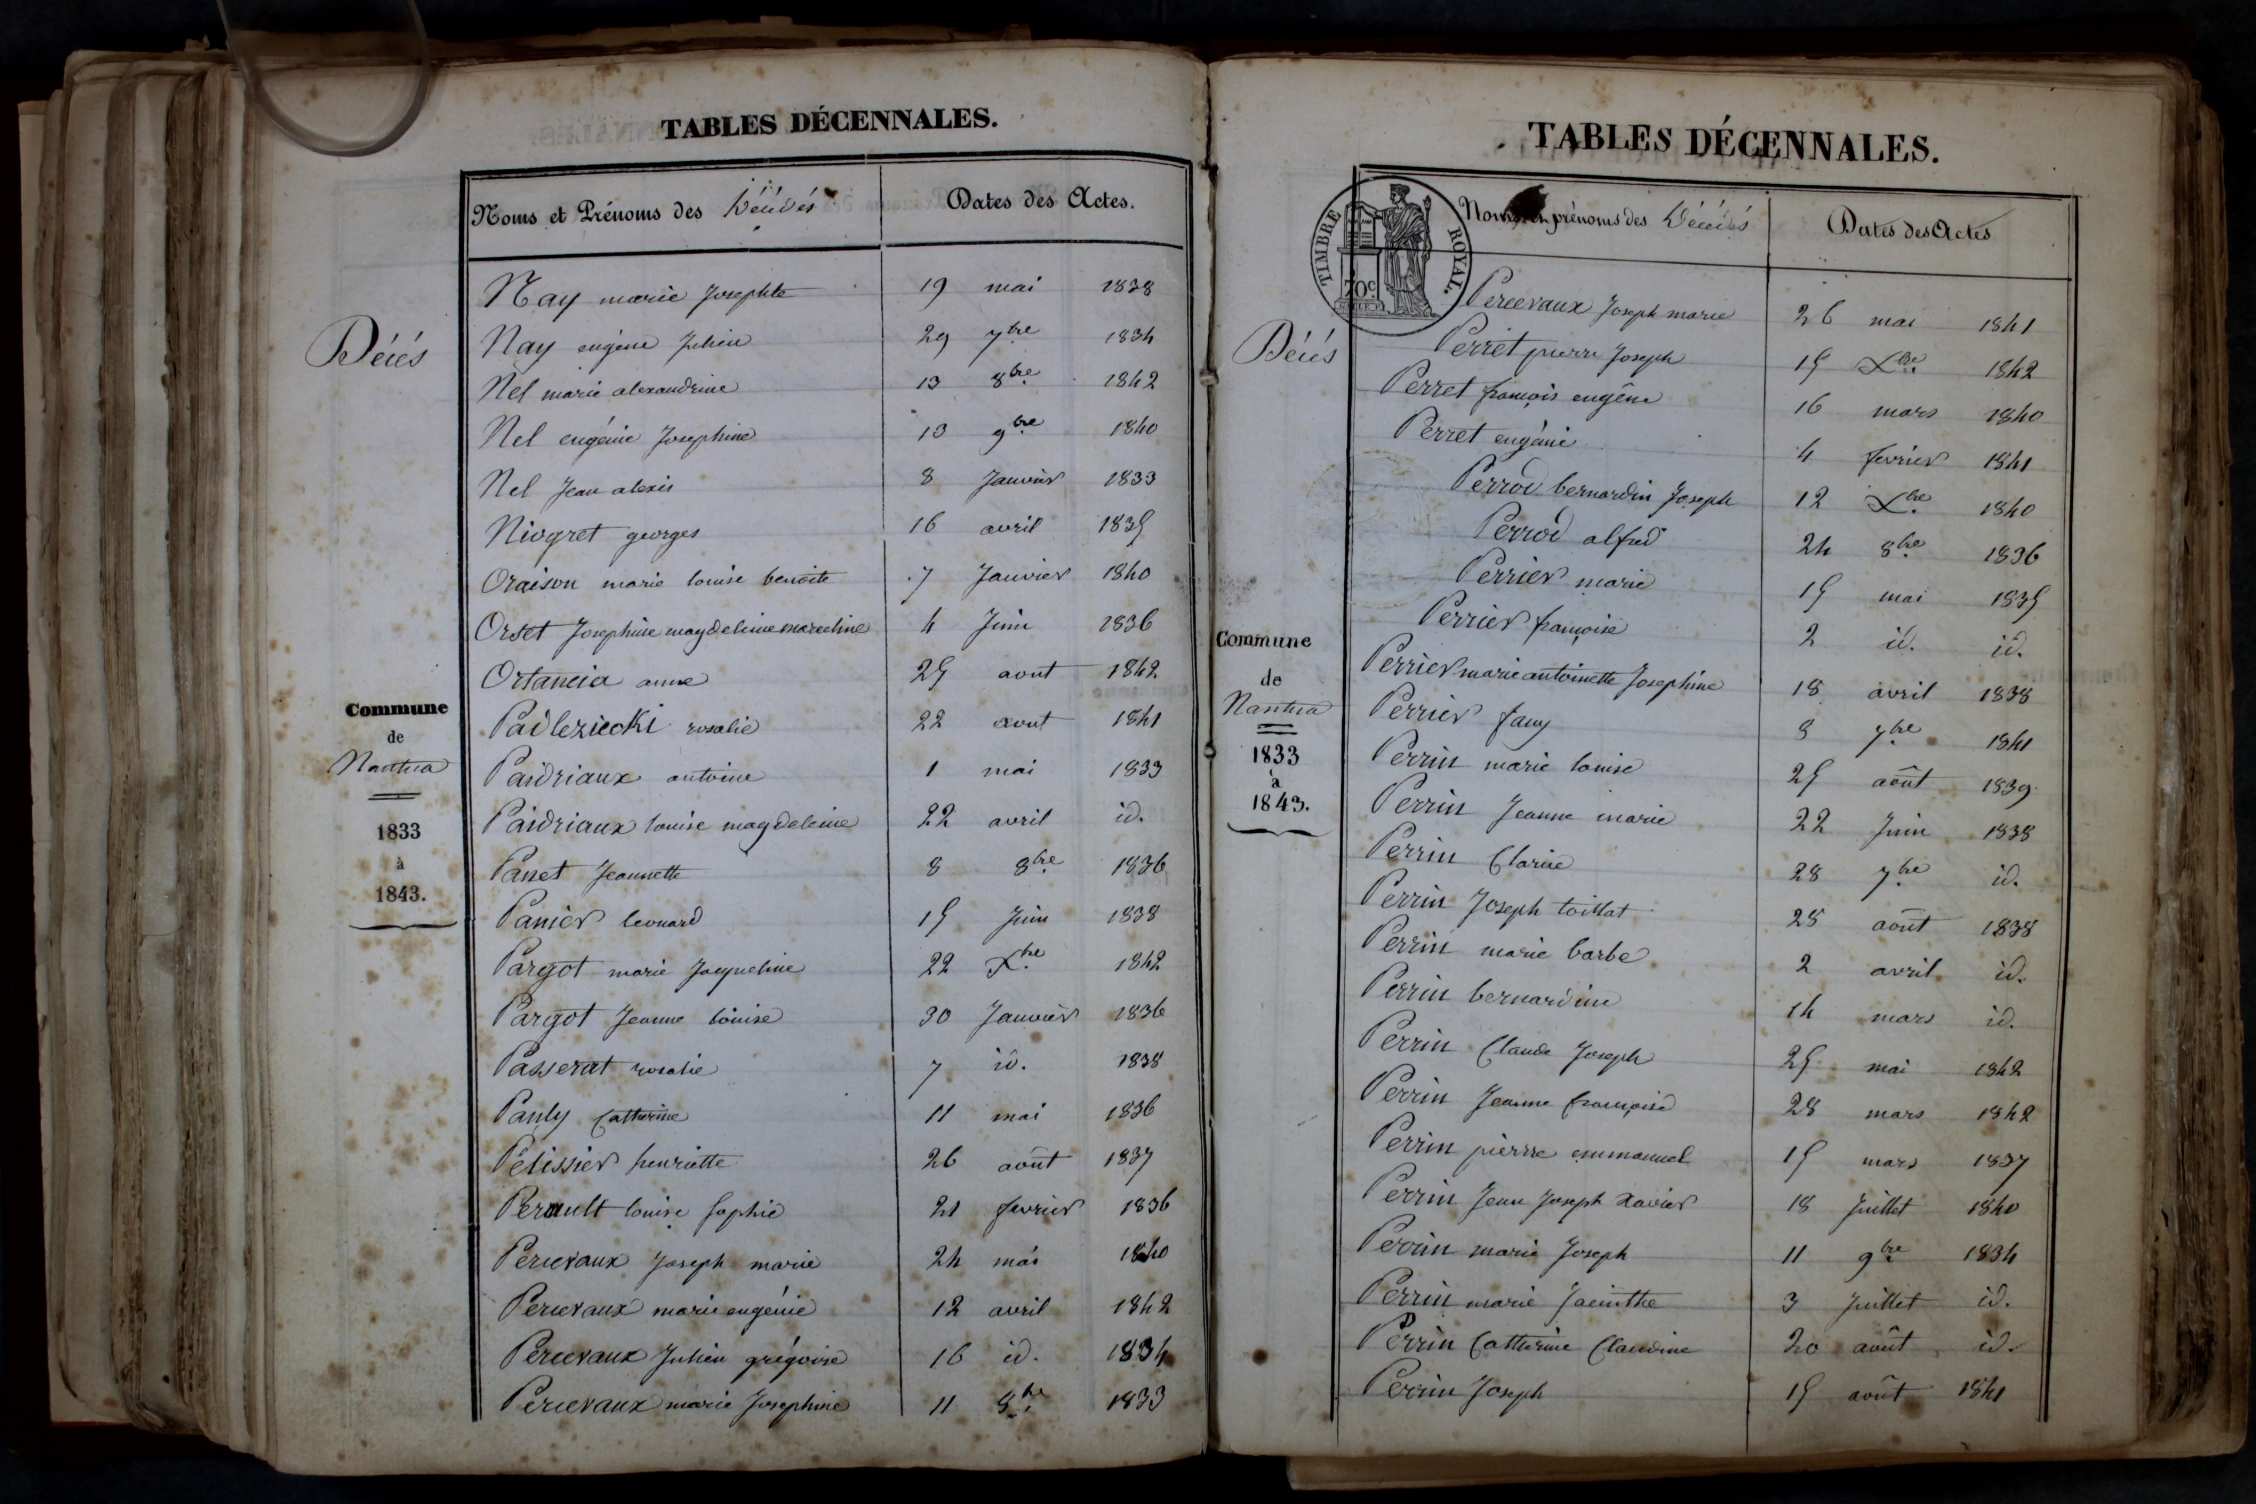 TABLES DÉCENNALES.
Noms et Prénoms des Décédés
Dates des Actes.
Décés
Commune
de
Nantua
1833
à
1843.
Nay marie Josephte 19 mai 1838
Nay eugène Julien 29 7bre 1834
Nel marie alexandrine 13 8bre 1842
Nel eugénie Josephine 13 9bre 1840
Nel Jean alexis 8 Janvier 1833
Niogret georges 16 avril 1835
Oraison marie louise benoite 7 Janvier 1840
Orset Josephine magdeleine marceline 4 Juin 1836
Ortancia anne 25 aout 1842
Padleziecki rosalie 22 aout 1841
Paidriaux antoine 1 mai 1833
Paidriaux louise magdeleine 22 avril id.
Panet Jeannette 8 8bre 1836
Panier leonard 15 Juin 1838
Pargot marie Jacqueline 22 Xbre 1842
Pargot Jeanne louise 30 Janvier 1836
Passerat rosalie 7 id. 1838
Pauly Catherine 11 mai 1836
Pelissier henriette 26 août 1837
Perault louise Sophie 21 fevrier 1836
Percevaux Joseph marie 24 mai 1840
Percevaux marie eugénie 12 avril 1842
Percevaux Julien grégoire 16 id. 1834
Percevaux marie Josephine 11 8bre 1833
TABLES DÉCENNALES.
TIMBRE ROYAL.
70c
Noms et prénoms des Décédés
Dates des Actes
Décés
Commune
de
Nantua
1833
à
1843.
Percevaux Joseph marie 26 mai 1841
Perret pierre Joseph 15 Xbre 1842
Perret françois eugêne 16 mars 1840
Perret eugénie 4 fevrier 1841
Perrod bernardin Joseph 12 Xbre 1840
Perrod alfred 24 8bre 1836
Perrier marie 15 mai 1835
Perrier françoise 2 id. id.
Perrier marie antoinette Josephine 18 avril 1838
Perrier fany 8 7bre 1841
Perrin marie louise 25 août 1839
Perrin Jeanne marie 22 Juin 1838
Perrin Clarice 28 7bre id.
Perrin Joseph toillat 28 août 1838
Perrin marie barbe 2 avril id.
Perrin bernardine 14 mars id.
Perrin Claude Joseph 25 mai 1842
Perrin Jeanne françoise 28 mars 1842
Perrin pierre emmanuel 15 mars 1837
Perrin Jean Joseph Xavier 18 Juillet 1840
Perrin marie Joseph 11 9bre 1834
Perrin marie Jacinthe 3 Juillet id.
Perrin Catherine Claudine 20 août id.
Perrin Joseph 15 août 1841